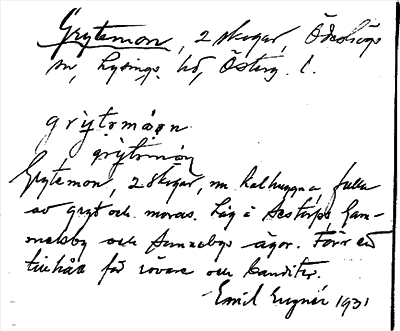 Grytemon, 2 skogar, Ödeshögs
sn, Lysings hd, Österg. l.
grytomon
grytomon
Grytemon, 2 skogar, nu kalhuggna, fulla
av gryt och moras. Låg å Sestorps, Gam-
melsby och Sunneby ägor. Förr ett
tillhåll för rövare och banditer.
Emil Zugnér 1931